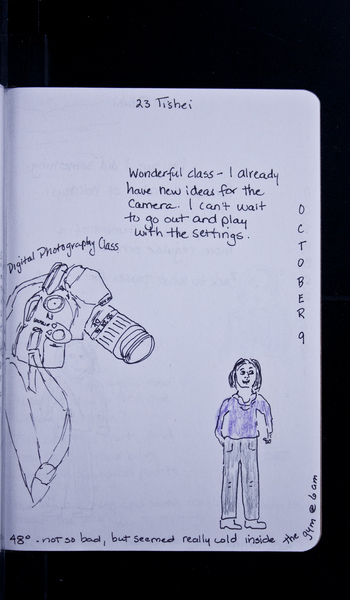 23 Tishei
Wonderful class - I already
have new ideas for the
camera. I can't wait
to go out and play
with the settings.
OCTOBER 9
Digital Photography Class
48° - not so bad, but seemed really cold inside the gym @ 6am